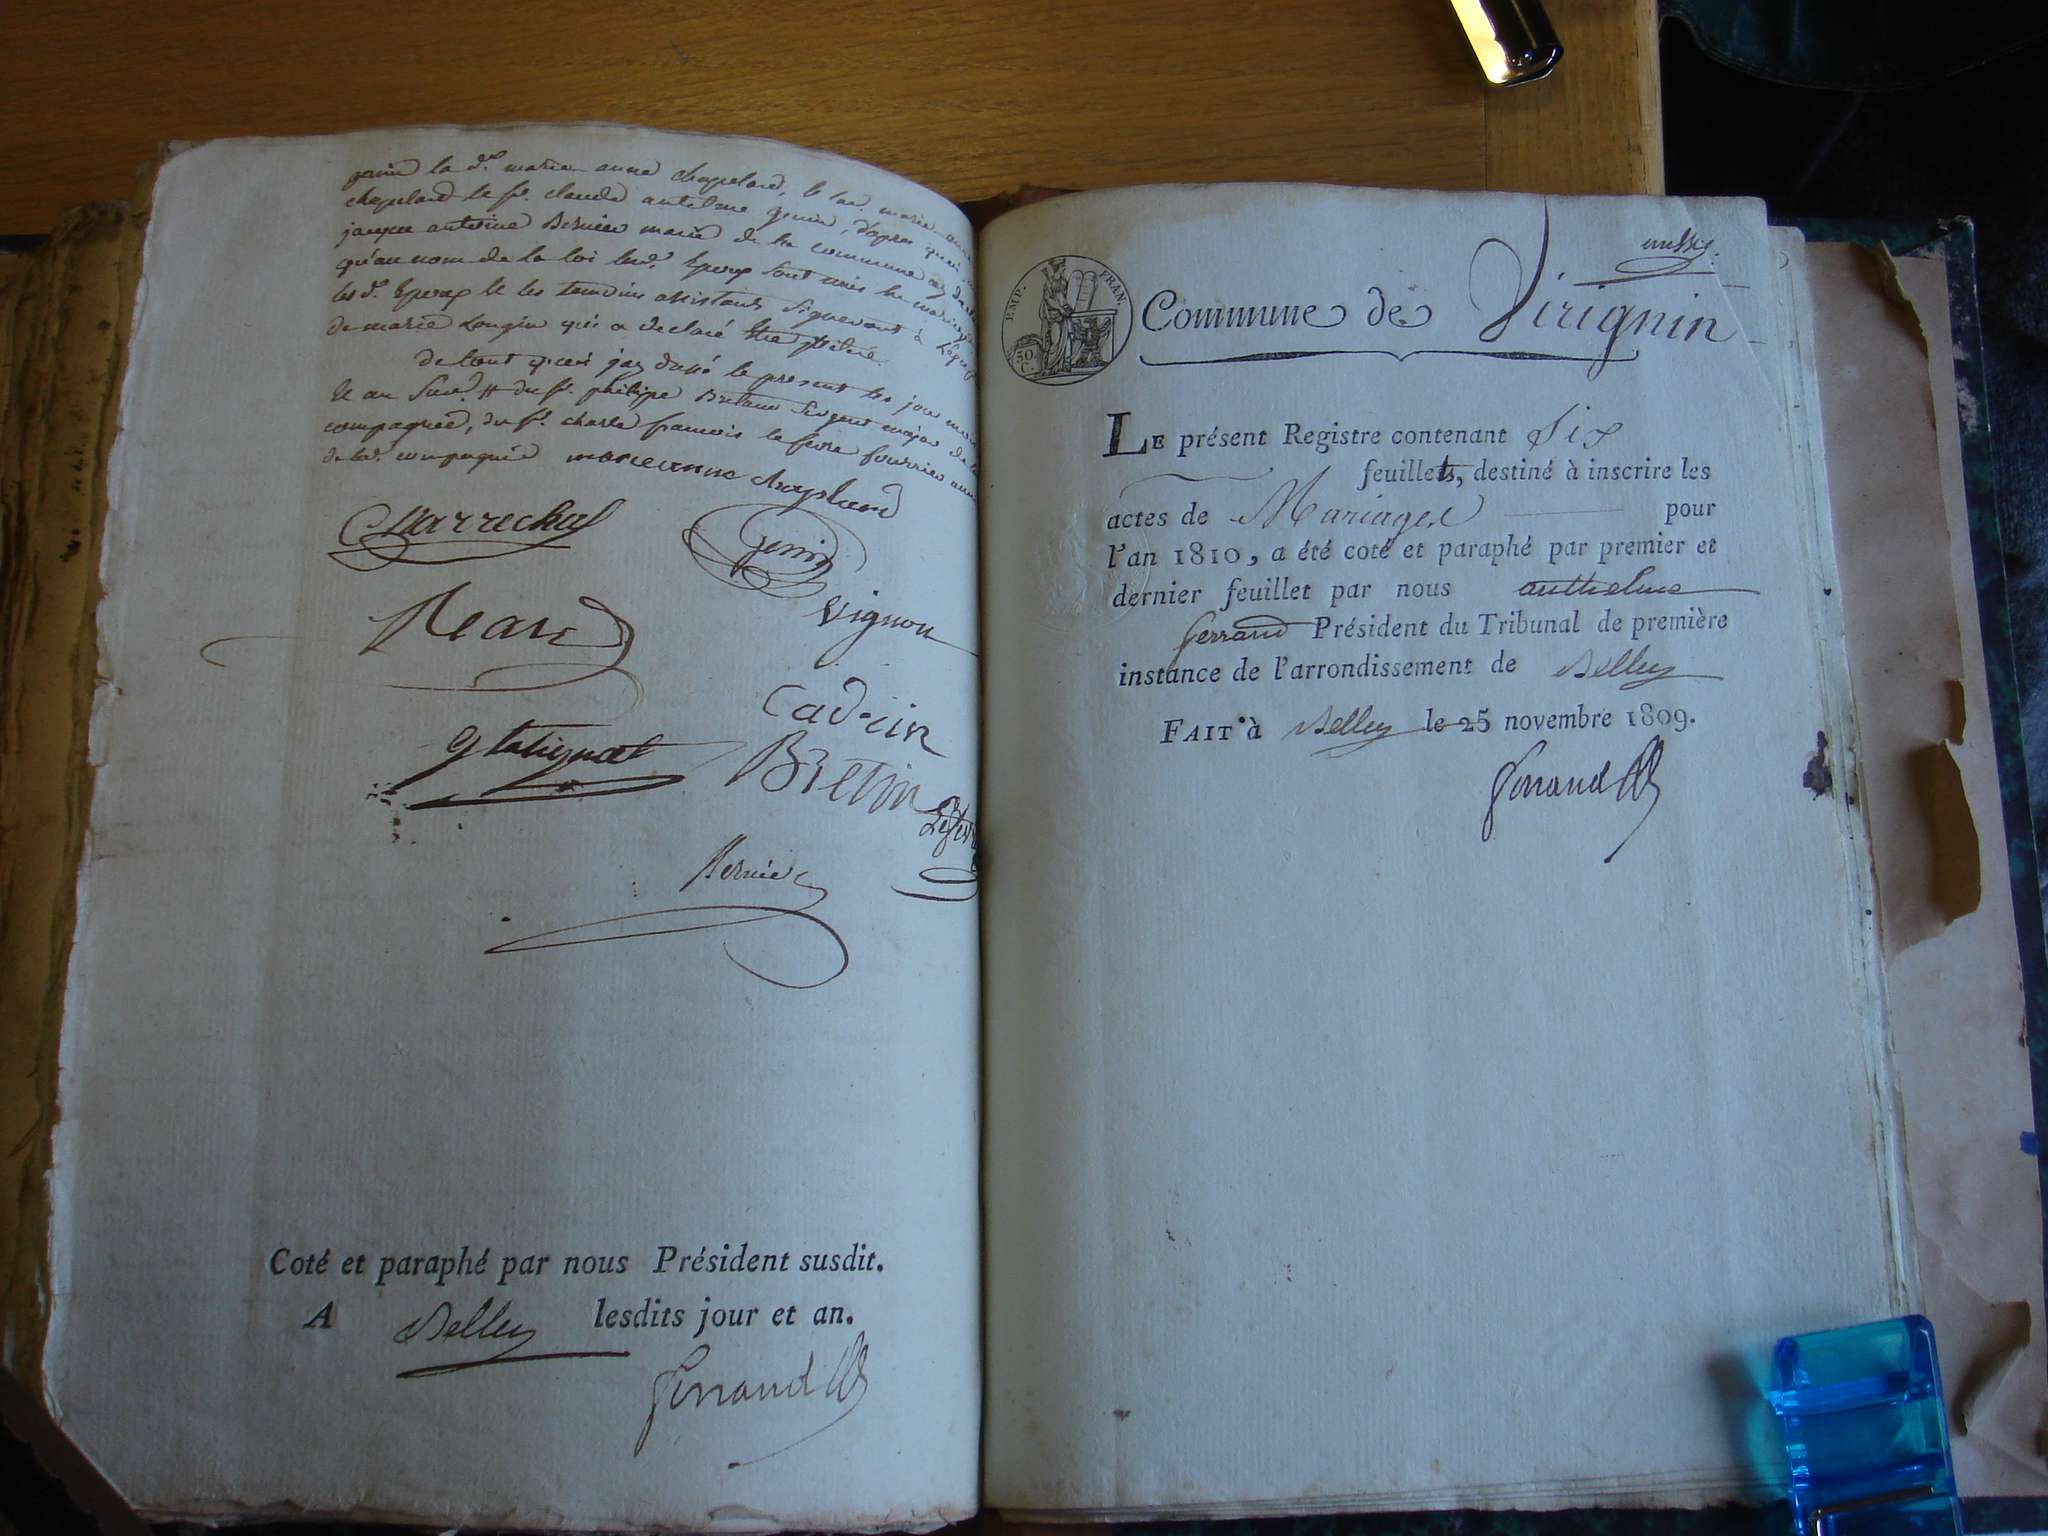 la d.e marie anne chapelard, le
chapelard le sr. claude antelme genin, d'apres quoi
jacques antoine Bernier maire de la commune
qu'au nom de la loi lesd. Epoux sont unis
les d. Epoux et les temoins assistants signeront à
de marie Longin qui a declaré
de tout quoi jay dressé le present les jour mois
Et an Susd. # du sr. philipe Bretin Sergent major de la
compagnie, du sr. charle francois lefevre fourrier
de lad. compagnie marieanne chapelard
Genin
Vignon
Cadrin
Bretin
Lefevre
Bernier
Coté et paraphé par nous Président susdit.
A Belley lesdits jour et an.
Ferrand
EMP. FRAN.
50. C.
Commune de Virignin
LE présent Registre contenant Six
feuillets, destiné à inscrire les
actes de Mariages pour
l'an 1810, a été coté et paraphé par premier et
dernier feuillet par nous anthelme
ferrand Président du Tribunal de première
instance de l'arrondissement de Belley
FAIT à Belley le 25 novembre 1809.
Ferrand